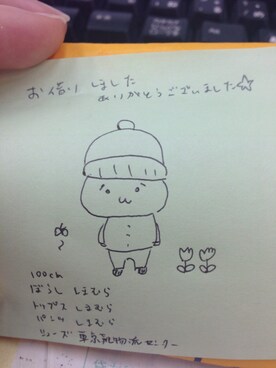 お借りしました
ありがとうございました☆
100cm
ぼうし しまむら
トップス しまむら
パンツ しまむら
シューズ 東京靴物流センター